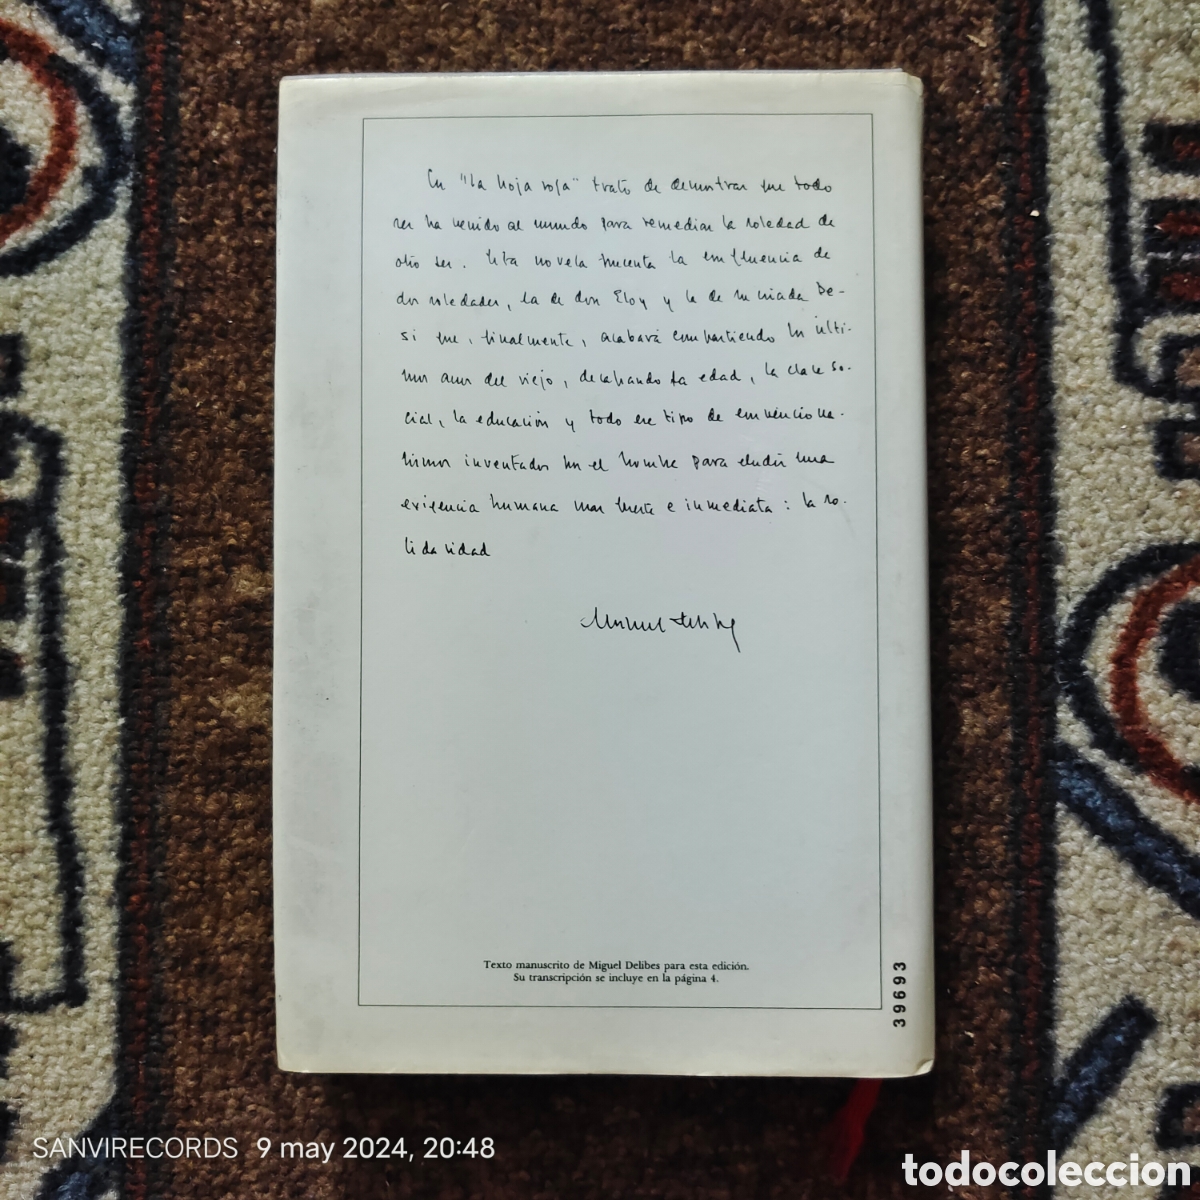 En "La hoja roja" trato de demostrar que todo
ser ha venido al mundo para remediar la soledad de
otro ser. Esta novela presenta la confluencia de
dos soledades, la de don Eloy y la de su criada De-
si que, finalmente, acabará compartiendo los últi-
mos años del viejo, desechando la edad, la clase so-
cial, la educación y todo ese tipo de convenciona-
lismos inventados por el hombre para eludir una
exigencia humana mas fuerte e inmediata: la so-
lidaridad
Miguel Delibes
Texto manuscrito de Miguel Delibes para esta edición.
Su transcripción se incluye en la página 4.
39693
SANVIRECORDS 9 may 2024, 20:48
todocoleccion